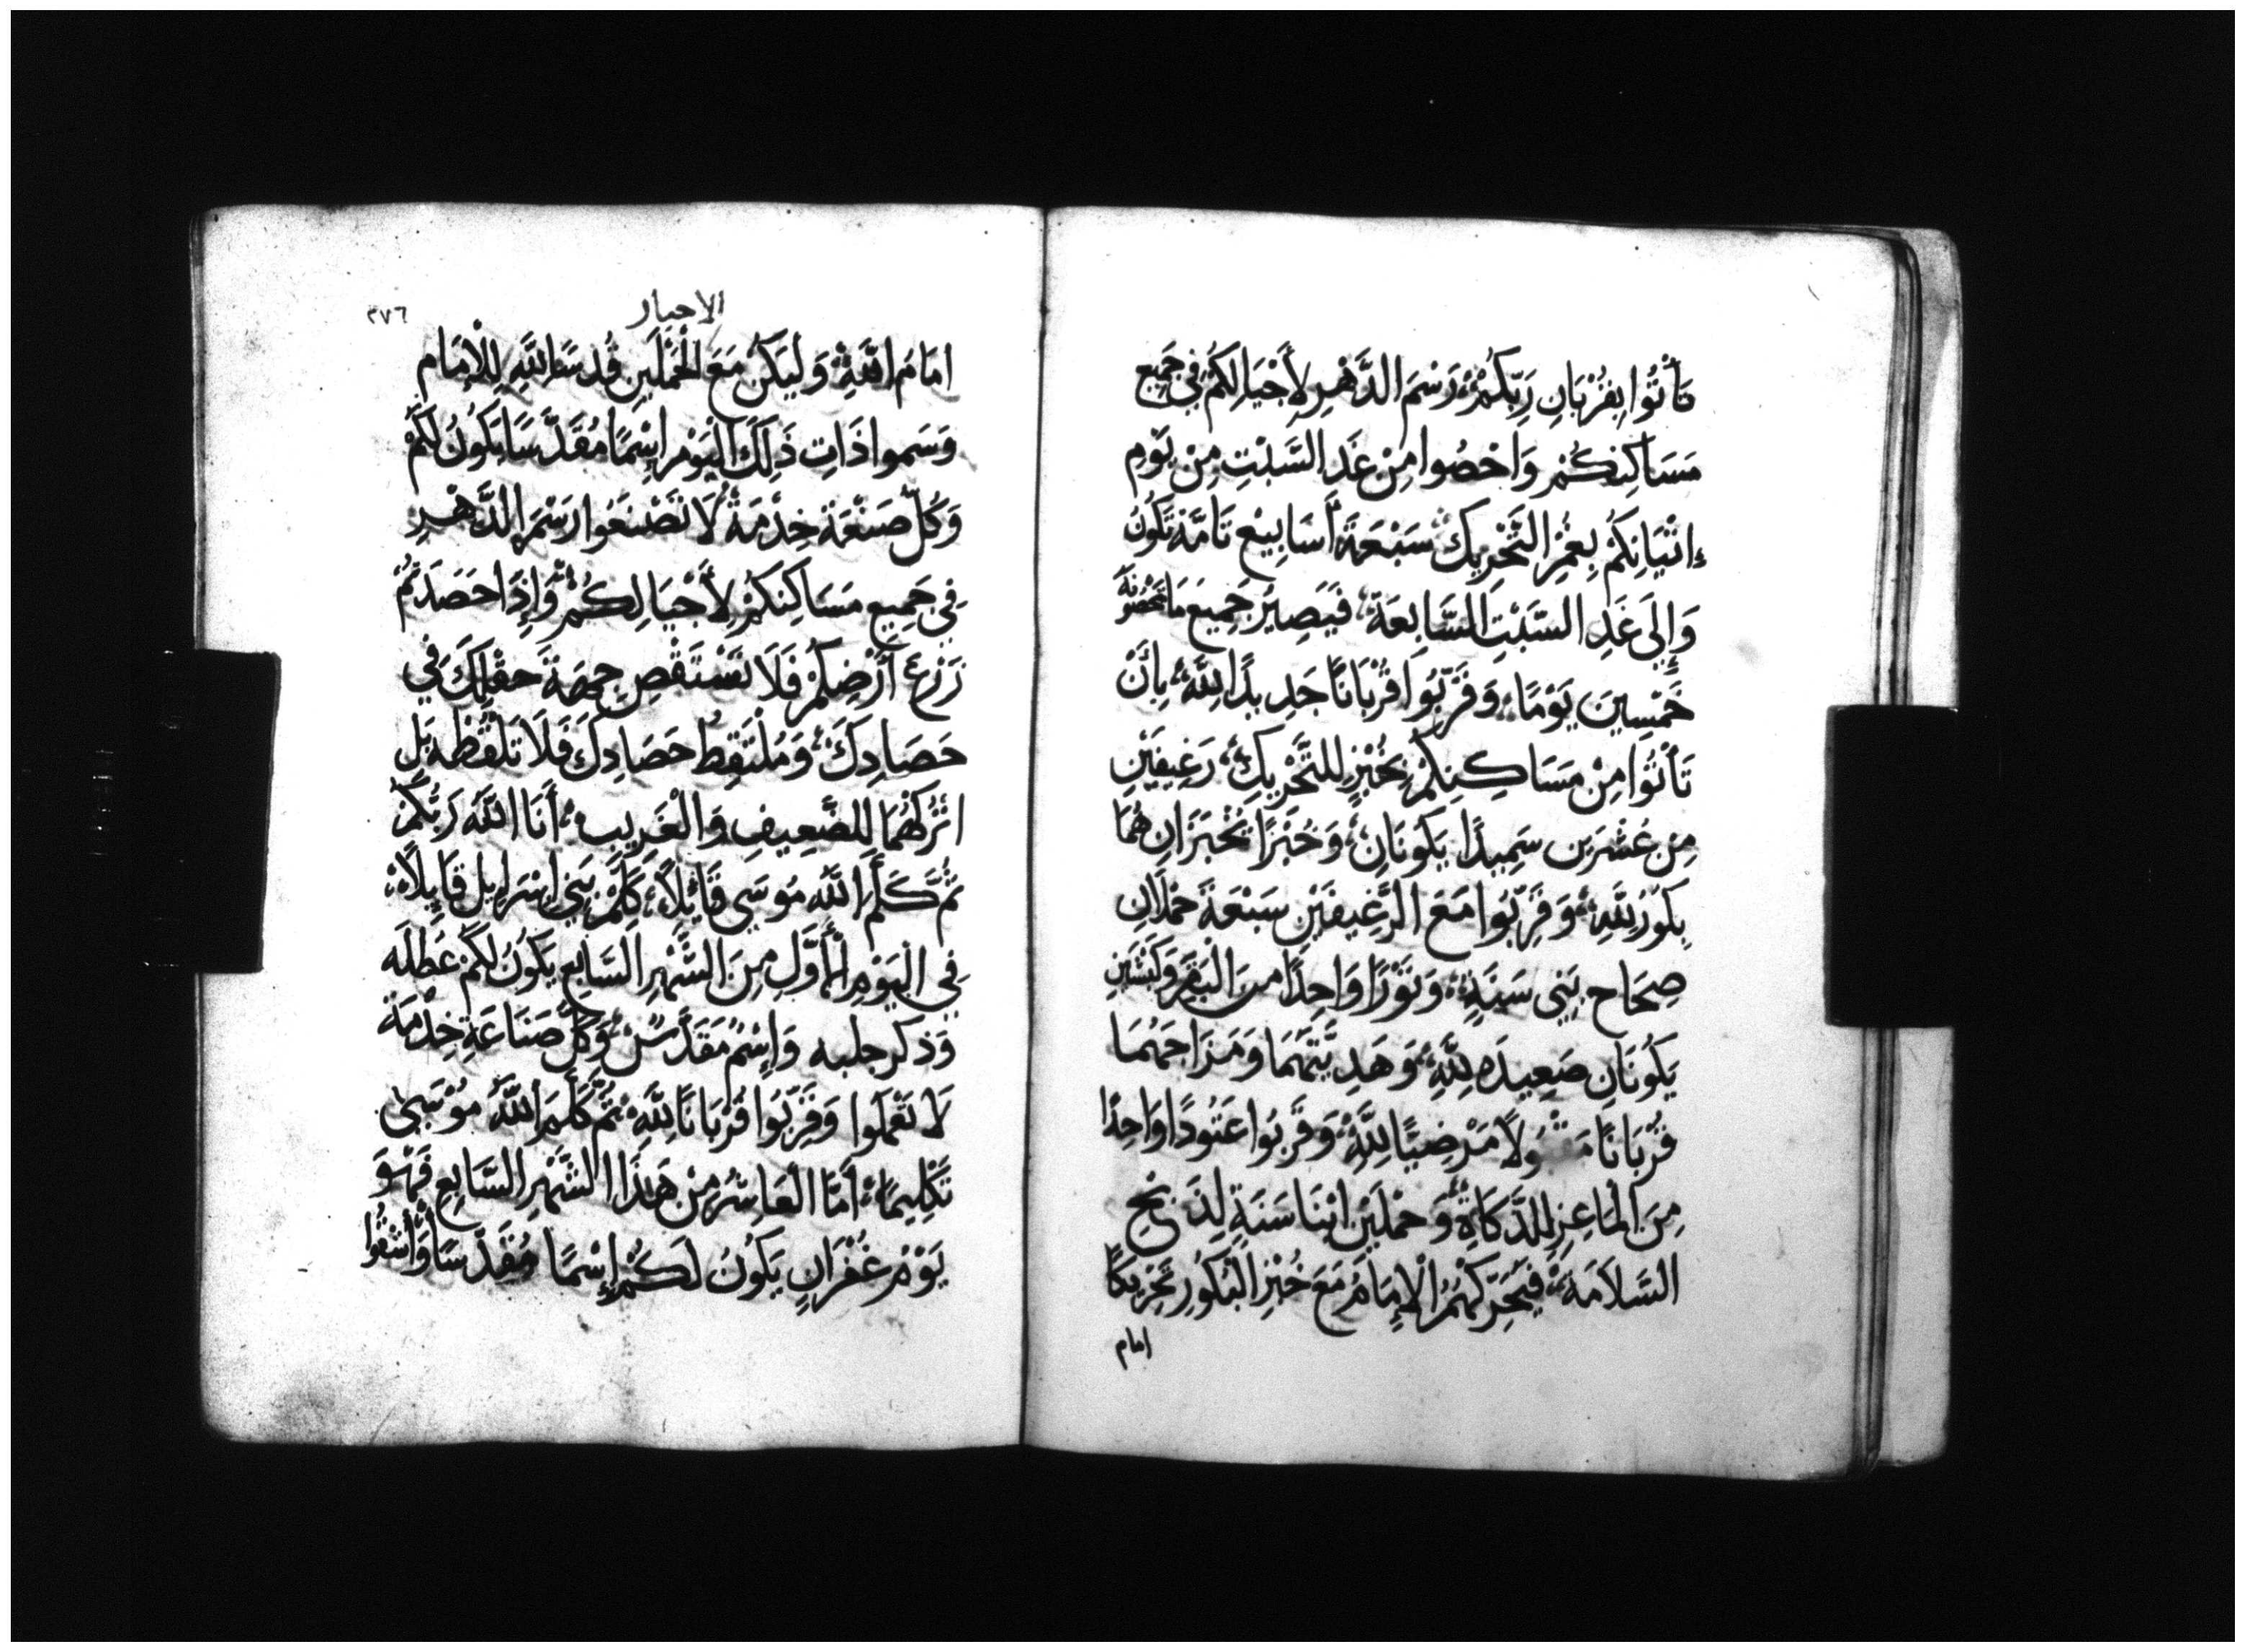 تَأْتُوا بِقُرْبَانِ رَبِّكُمْ رَسْمَ الدَّهْرِ لِأَجْيَالِكُمْ فِي جَمِيعِ
مَسَاكِنِكُمْ وَاحْصُوا مِنْ غَدِ السَّبْتِ مِنْ يَوْمِ
إِتْيَانِكُمْ بِغُمْرِ التَّحْرِيكِ سَبْعَةَ أَسَابِيعَ تَامَّةً تَكُونُ
وَإِلَى غَدِ السَّبْتِ السَّابِعَةِ فَيَصِيرُ جَمِيعَ مَا تَحْصُونَهُ
خَمْسِينَ يَوْمًا وَقَرِّبُوا قُرْبَانًا جَدِيدًا لِلَّهِ بِأَنْ
تَأْتُوا مِنْ مَسَاكِنِكُمْ بِخُبْزٍ لِلتَّحْرِيكِ رَغِيفَيْنِ
مِنْ عُشْرَيْنِ سَمِيدًا يَكُونَانِ وَخُبْزًا تُخْبَزَانِ هُمَا
بِكُورٌ لِلَّهِ وَقَرِّبُوا مَعَ الرَّغِيفَيْنِ سَبْعَةَ حُمْلَانِ
صِحَاحٍ بَنِي سَنَةٍ وَثَوْرًا وَاحِدًا مِنَ الْبَقَرِ وَكَبْشَيْنِ
يَكُونَانِ صَعِيدَه لِلَّهِ وَهَدِيَّتَهُمَا وَمَزَاجَهُمَا
قُرْبَانًا مَرْضِيًّا لِلَّهِ وَقَرِّبُوا عَتُودًا وَاحِدًا
مِنَ الْمَاعِزِ لِلذَّكَاةِ وَحَمْلَيْنِ ابْنَا سَنَةٍ لِذَبْحِ
السَّلَامَةِ فَيُحَرِّكْهُمُ الْإِمَامُ مَعَ خُبْزِ الْبُكُورِ تَحْرِيكًا
امام
الاحبار
٢٧٦
امَامَ اللَّهِ وَلْيَكُنْ مَعَ الْحَمَلَيْنِ قُدْسًا لِلَّهِ لِلْإِمَامِ
وَسَموا ذَاتِ ذَلِكَ الْيَوْمِ إِسْمًا مُقَدَّسًا يَكُونُ لَكُمْ
وَكُلَّ صَنْعَةِ خِدْمَةٍ لَا تَصْنَعُوا رَسْمَ الدَّهْرِ
فِي جَمِيعِ مَسَاكِنِكُمْ لِأَجْيَالِكُمْ وَإِذَا حَصَدْتُمْ
زَرْعَ أَرْضِكُمْ فَلَا تَسْتَقْصِ جِهَةَ حَقْلِكَ فِي
حَصَادِكَ وَمُلْتَقِطُ حَصَادِكَ فَلَا تَلْقُطْهُ بَلِ
اتْرُكْهُمَا لِلضَّعِيفِ وَالْغَرِيبِ أَنَا اللَّهُ رَبُّكُمْ
ثُمَّ كَلَّمَ اللَّهُ مُوسَى قَائِلًا كَلِّمْ بَنِي إِسْرَايِلَ قَايِلًا
فِي الْيَوْمِ الْأَوَّلِ مِنَ الشَّهْرِ السَّابِعِ يَكُونُ لَكُمْ عَطْلَه
وَذكر جلبه وَإِسْمٌ مُقَدَّسٌ وَكُلَّ صَنَاعَةِ خِدْمَةٍ
لَا تَعْمَلُوا وَقَرِّبُوا قُرْبَانًا لِلَّهِ ثُمَّ كَلَّمَ اللَّهُ مُوسَى
تَكْلِيمًا أَمَّا الْعَاشِرُ مِنْ هَذَا الشَّهْرِ السَّابِعِ فَهْوَ
يَوْمُ غُفْرَانٍ يَكُونُ لَكُمْ إِسْمًا مُقَدَّسًا وَأَشْقُوا